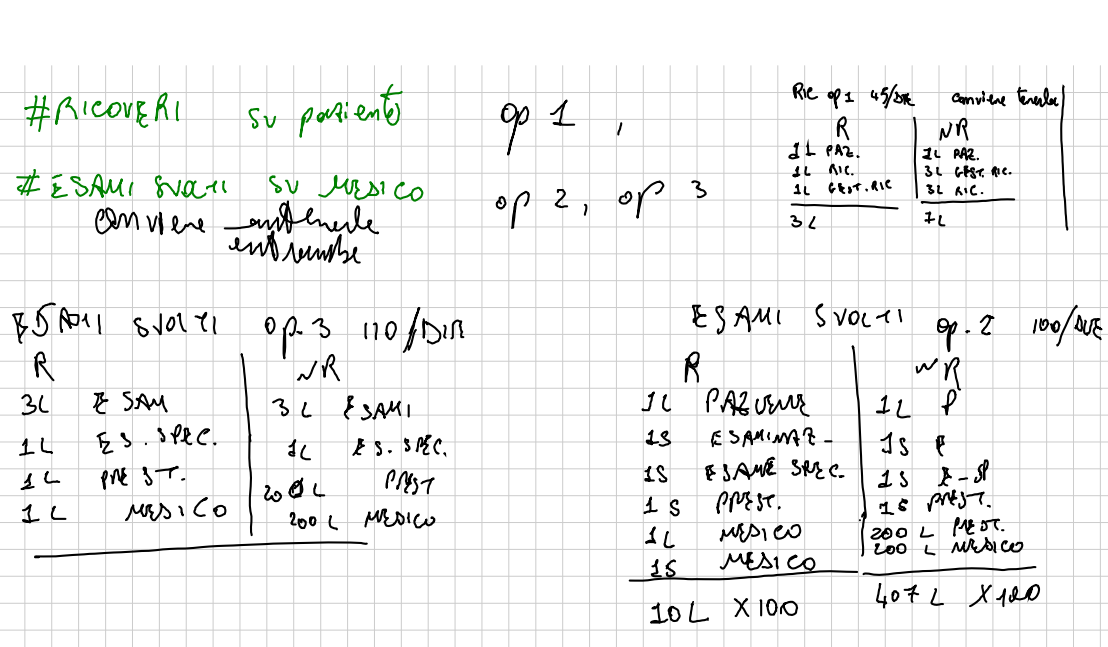 #RICOVERI su paziente op 1 ,
#ESAMI SVOLTI SU MEDICO op 2, op 3
conviene
entrambe
Ric op 1 45/DIE conviene tenerla
R NR
1L PAZ. 1L PAZ.
1L RIC. 3L GEST. RIC.
1L GEST. RIC 3L RIC.
3L 7L
ESAMI SVOLTI op. 3 110/DIE
R NR
3L ESAMI 3L ESAMI
1L ES. SPEC. 1L ES. SPEC.
1L PREST. 200L PREST
1L MEDICO 200L MEDICO
ESAMI SVOLTI op. 2 100/DIE
R NR
1L PAZIENTE 1L P
1S 1S E
1S ESAME SPEC. 1S E-SP
1S PREST. 1S PREST.
1L MEDICO 200 L PREST.
1S MEDICO 200 L MEDICO
10L X100 407 L X100